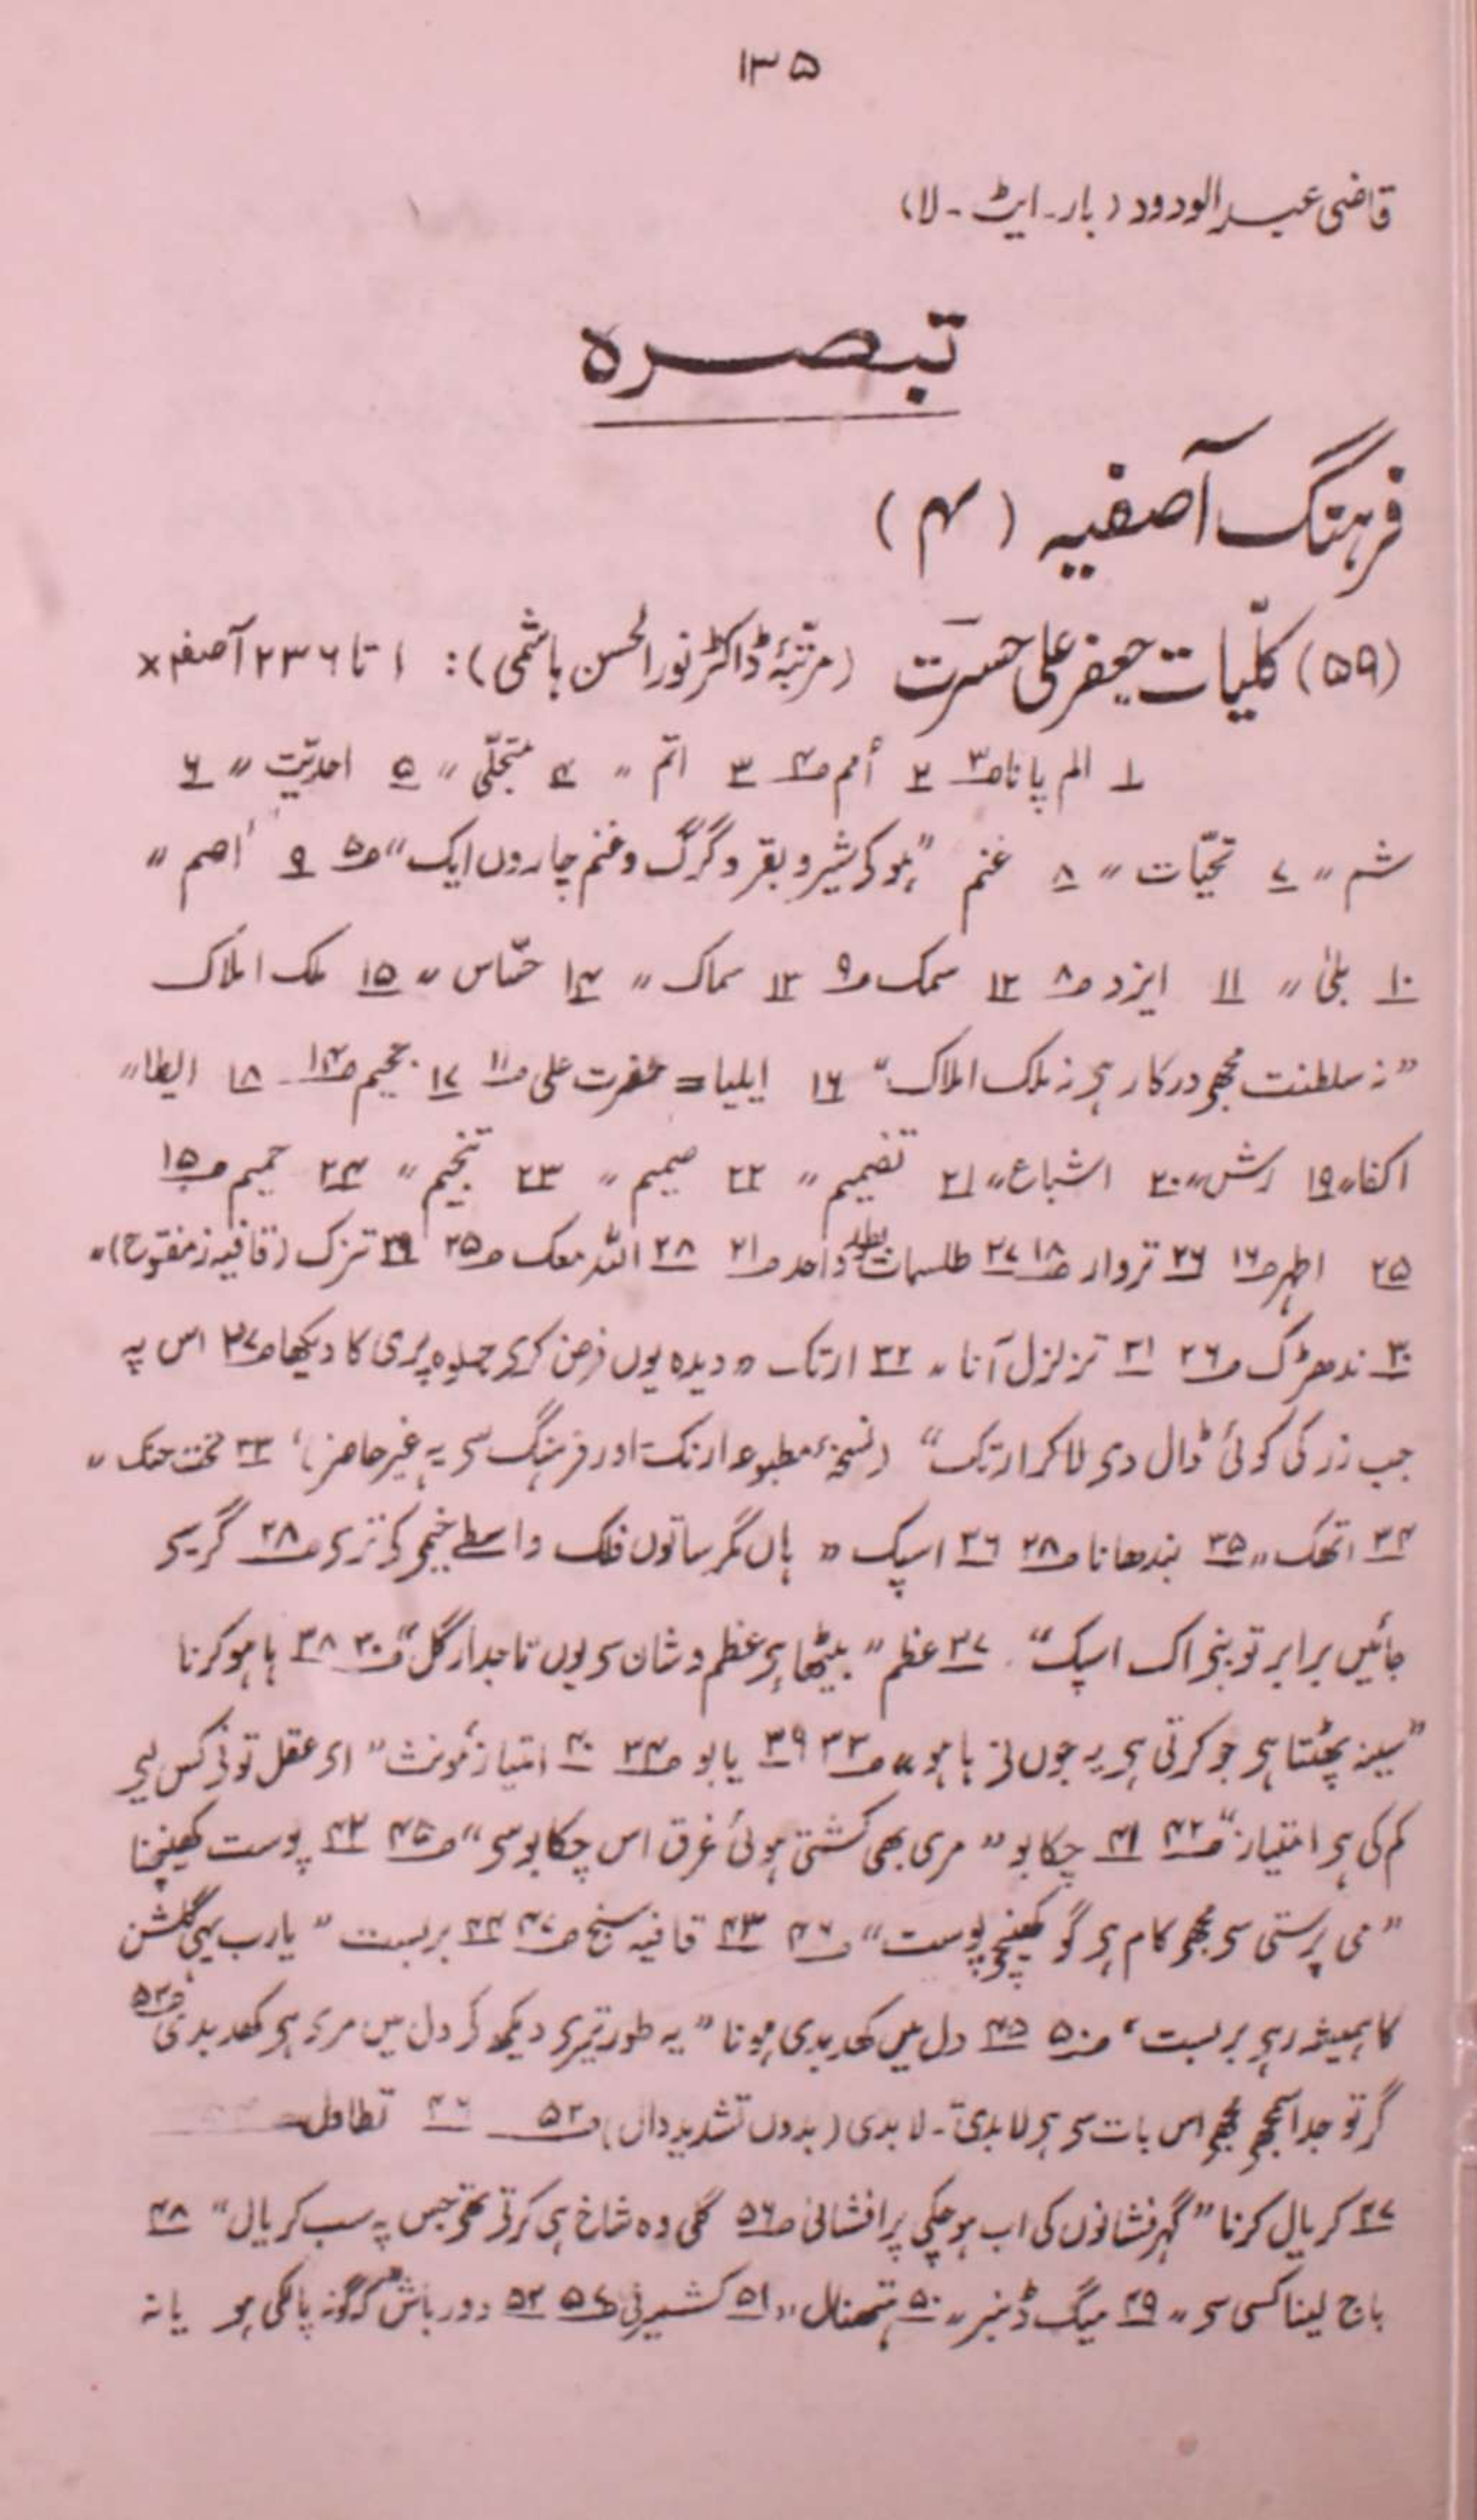 ۱۳۵
قاضی عبدالودود (بار۔ ایٹ۔ لا)
تبصرہ
فرہنگ آصفیہ (۴)
(۵۹) کلّیات جعفر علی حسرت (مرتّبۂ ڈاکٹر نورالحسن ہاشمی): ۱ تا ۲۳۶ آصفہ ×
۱ الم پانا ص۳ ۲ اُمم ص۴ ۳ اتم ״ ۴ متجلّی ״ ۵ احدیّت ״ ۶
شم ״ ۷ تحیّات ״ ۸ غنم "ہوکے شیر و بقر و گرگ و غنم چاروں ایک" ص۵ ۹ اصم ״
۱۰ بلیٰ ״ ۱۱ ایزد ص۸ ۱۲ سمک ص۹ ۱۳ سماک ״ ۱۴ حسّاس ״ ۱۵ ملک املاک
"نہ سلطنت مجھے درکار ہے نہ ملک املاک" ۱۶ ایلیا = حضرت علی ص۱۱ ۱۷ جحیم ص۱۴ ۱۸ ایطا ״
اکفا ״ ۱۹ رش ״ ۲۰ اشباع ״ ۲۱ تضمیم ״ ۲۲ صمیم ״ ۲۳ تنجیم ״ ۲۴ حمیم ص۱۵
۲۵ اطہر ص۱۶ ۲۶ تروار ص۱۸ ۲۷ طلسمات بطور واحد ص۲۱ ۲۸ اللہ معک ص۲۵ ۲۹ تزک (قافیہ ز مفتوح) ״
۳۰ ندھڑک ص۲۶ ۳۱ تزلزل آنا ״ ۳۲ ارتک "دیدہ یوں فرض کرے جلوہ پری کا دیکھا ص۲۷ اس پہ
جب زر کی کوئی ڈال دے لاکر ارتک" (نسخۂ مطبوعہ ارنک اور فرہنگ سے یہ غیر حاضر)، ۳۳ تخت حنک ״
۳۴ اتھک ״ ۳۵ بندھانا ص۲۸ ۳۶ اسپک "ہاں مگر ساتوں فلک واسطے خیمے کے ترے ص۲۸ گر سیے
جائیں برابر تو بنے اک اسپک" ۳۷ عظم "بیٹھا ہے عظم و شان سے یوں تاجدار گل" ص۳۰ ۳۸ ہا ہو کرنا
"سینہ پھٹتا ہے جو کرتی ہے یہ جوں نے ہا ہو" ص۳۲ ۳۹ یابو ص۳۴ ۴۰ امتیاز مؤنث "اے عقل تو نے کس لیے
کم کی ہے امتیاز" ص۴۲ ۴۱ چکابو "مری بھی کشتی ہوئی غرق اس چکابو سے" ص۴۵ ۴۲ پوست کھینچنا
"می پرستی سے مجھے کام ہے گو کھینچے پوست" ص۴۶ ۴۳ قافیہ سنج ص۴۷ ۴۴ بربست "یارب یہی گلشن
کا ہمیشہ رہے بربست" ص۵۰ ۴۵ دل میں کھدبدی ہونا "یہ طور تیرے دیکھ کے دل میں مرے ہے کھدبدی ص۵۲
گر تو جدا مجھے اس بات سے ہے لابدی۔ لابدی (بدون تشدید دال) ص۵۲ ۴۶ تطاول
۴۷ کریال کرنا "گہر فشانوں کی اب ہو چکی پر افشانی ص۵۶ گئی وہ شاخ ہی کرتے تھے جس پہ سب کریال" ۴۸
باج لینا کسی سے ״ ۴۹ میگ ڈنبر ״ ۵۰ ہتھنال ״ ۵۱ کشمیرنی ص۵۷ ۵۲ دورباش "گونہ پالکی ہو یا نہ